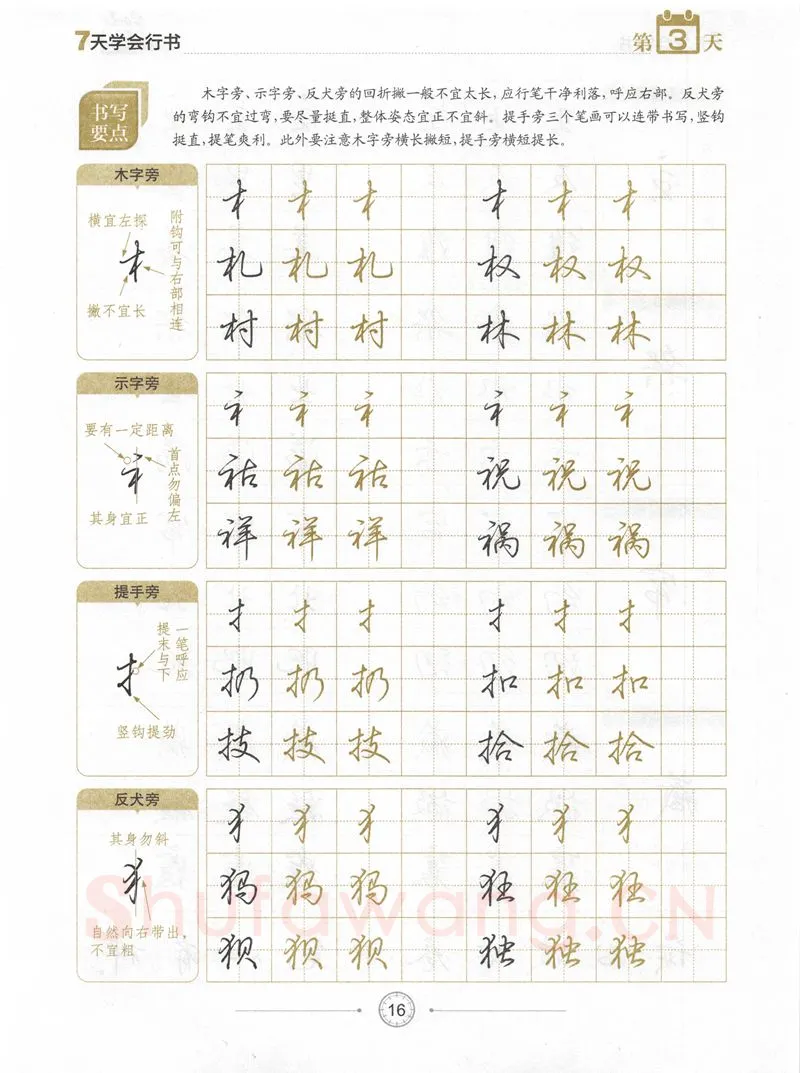 7天学会行书
第3天
书写要点
木字旁、示字旁、反犬旁的回折撇一般不宜太长，应行笔干净利落，呼应右部。反犬旁
的弯钩不宜过弯，要尽量挺直，整体姿态宜正不宜斜。提手旁三个笔画可以连带书写，竖钩
挺直，提笔爽利。此外要注意木字旁横长撇短，提手旁横短提长。
木字旁
横宜左探
附钩可与右部相连
撇不宜长
木 木 木 木 木 木
札 札 札 权 权 权
村 村 村 林 林 林
示字旁
要有一定距离
首点勿偏左
其身宜正
礻 礻 礻 礻 礻 礻
祜 祜 祜 祝 祝 祝
祥 祥 祥 祸 祸 祸
提手旁
一笔呼应
提末与下
竖钩提劲
扌 扌 扌 扌 扌 扌
扔 扔 扔 扣 扣 扣
技 技 技 拾 拾 拾
反犬旁
其身勿斜
自然向右带出，
不宜粗
犭 犭 犭 犭 犭 犭
犸 犸 犸 狂 狂 狂
狈 狈 狈 独 独 独
Shufawang.CN
16